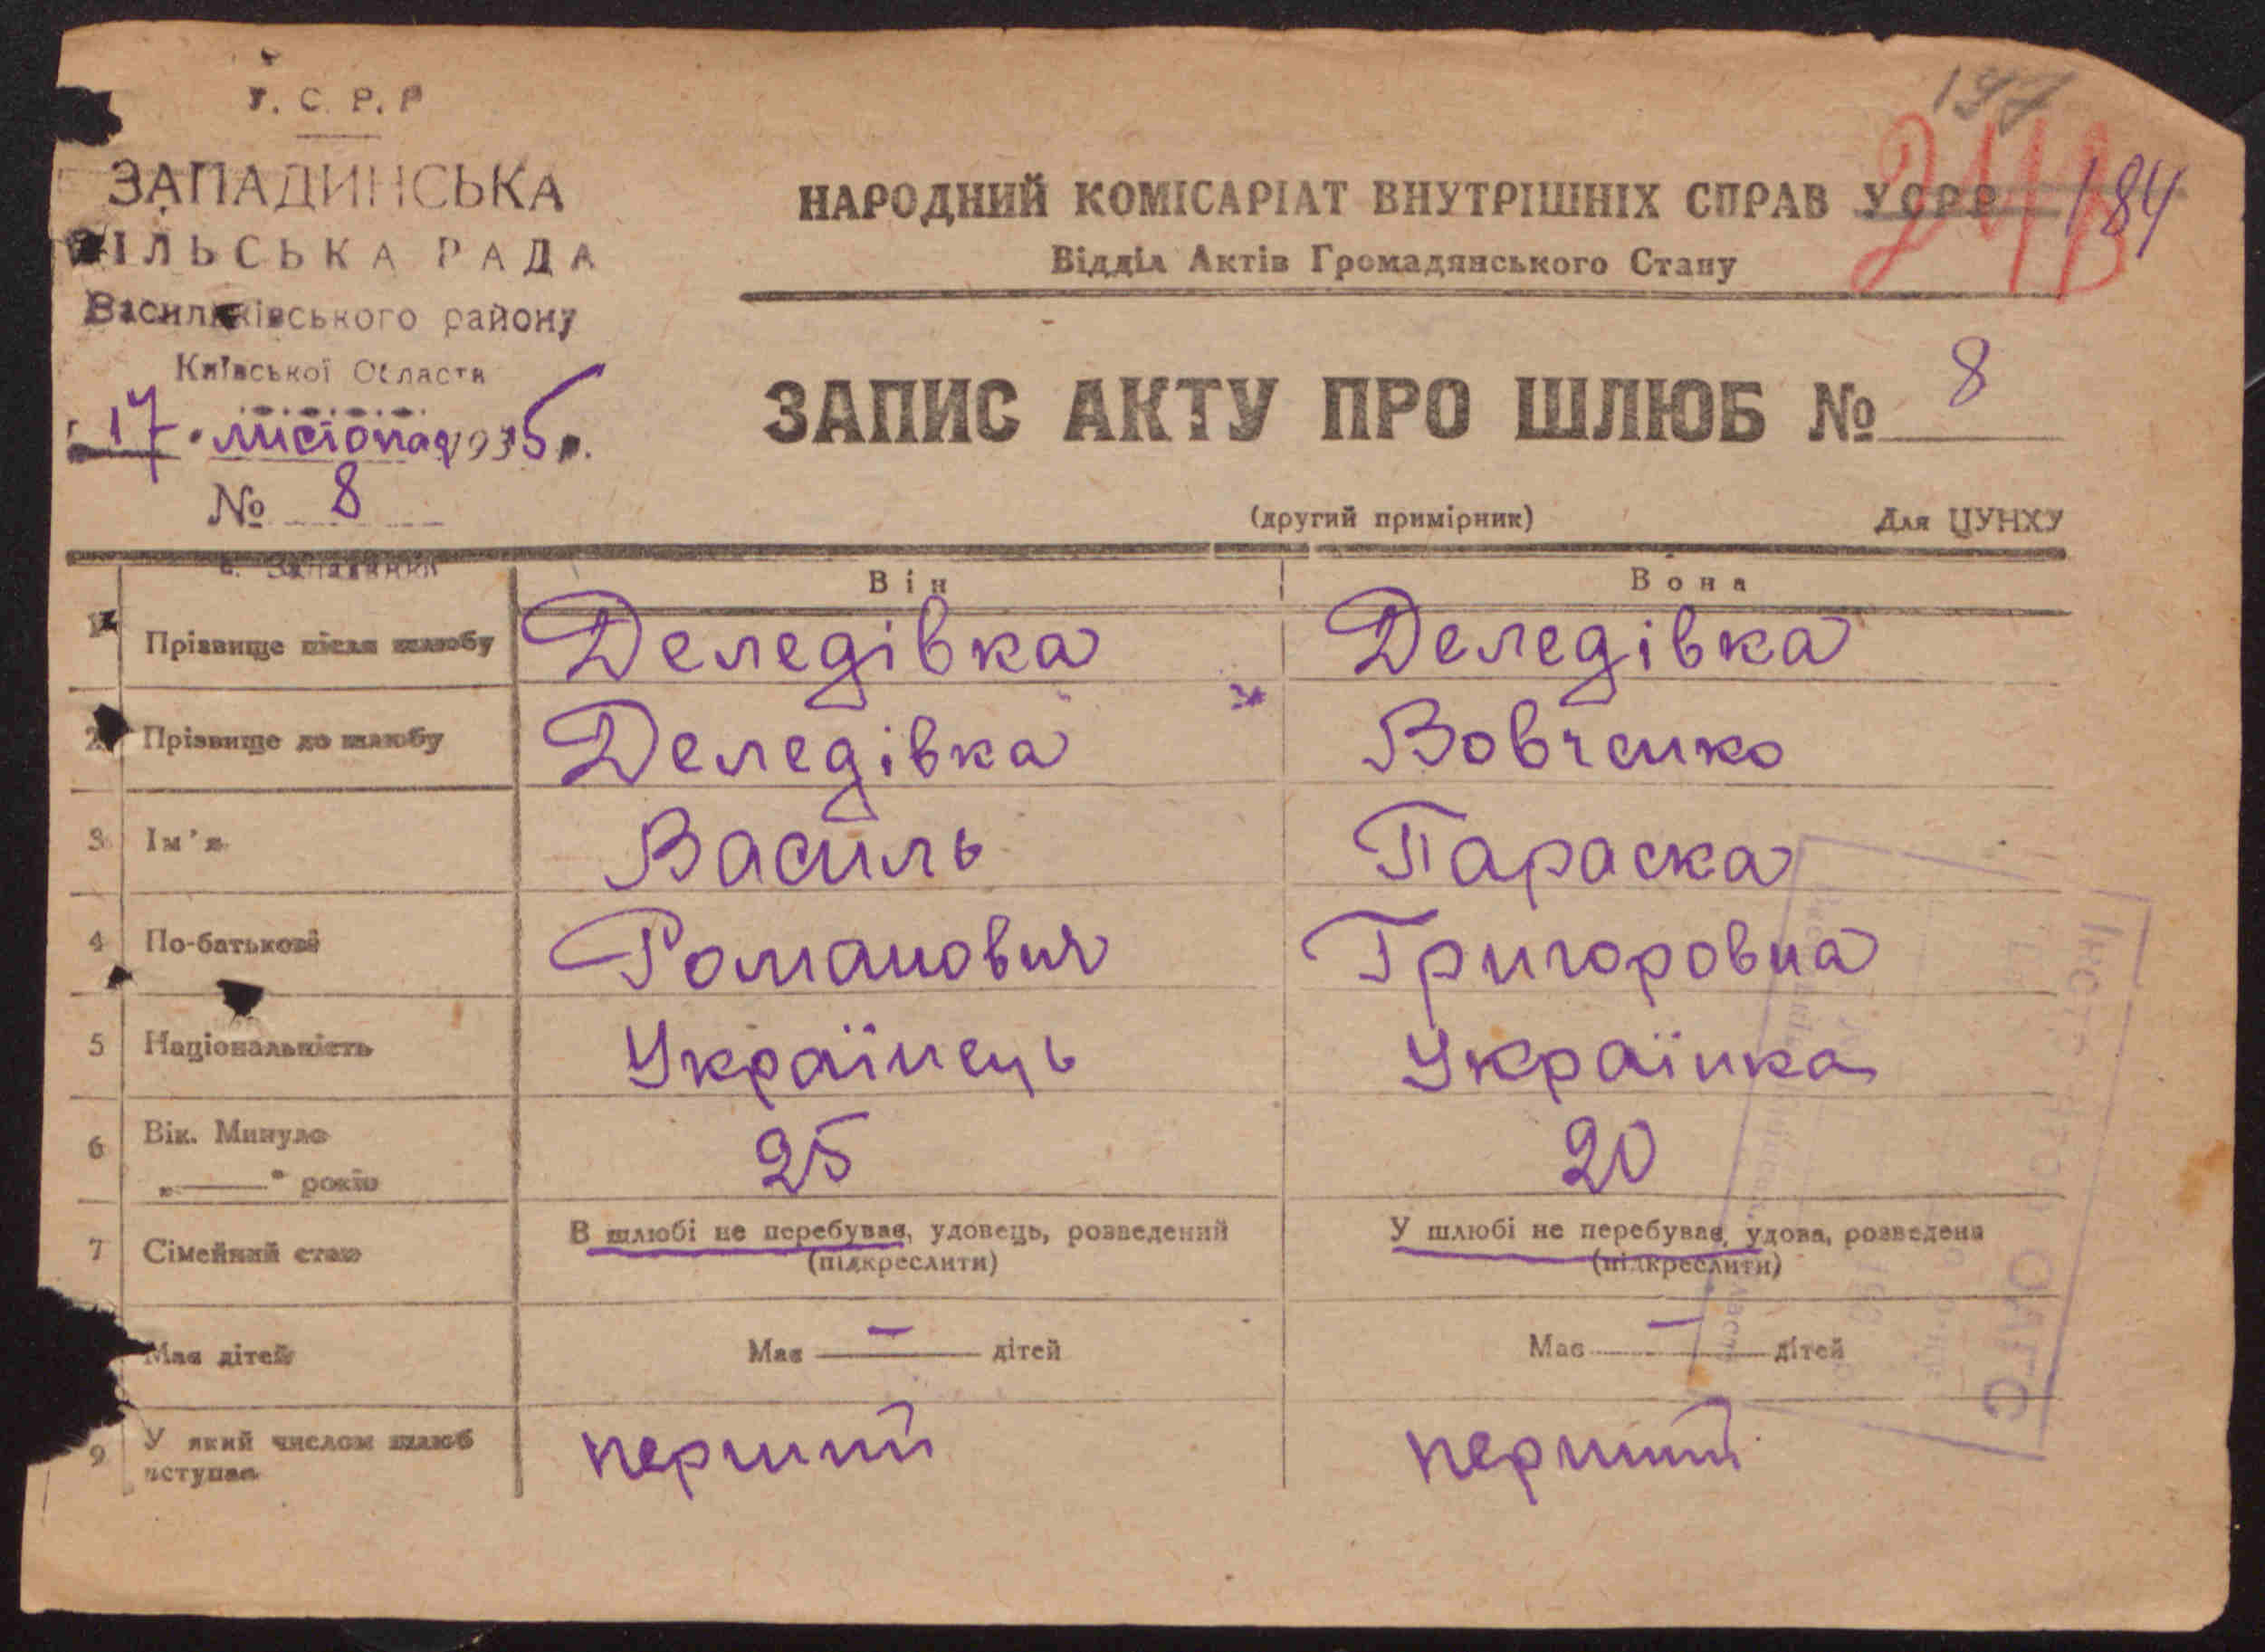 У. С. Р. Р
ЗАПАДИНСЬКА
СІЛЬСЬКА РАДА
Васильківського району
Київської Області
17 листопад 1935 р.
№ 8
с. Западинка
197
184
НАРОДНИЙ КОМІСАРІАТ ВНУТРІШНІХ СПРАВ УСРР
Відділ Актів Громадянського Стану
ЗАПИС АКТУ ПРО ШЛЮБ № 8
(другий примірник) Для ЦУНХУ
Він Вона
1 Прізвище після шлюбу Деледівка Деледівка
2 Прізвище до шлюбу Деледівка Вовченко
3 Ім'я Василь Параска
4 По-батькові Романович Григоровна
5 Національність Українець Українка
6 Вік. Минуло 25 20
„——" років
7 Сімейний стан В шлюбі не перебував, удовець, розведений У шлюбі не перебував, удова, розведена
(підкреслити) (підкреслити)
Має дітей Має — дітей Має — дітей
9 У який числом шлюб перший перший
вступає